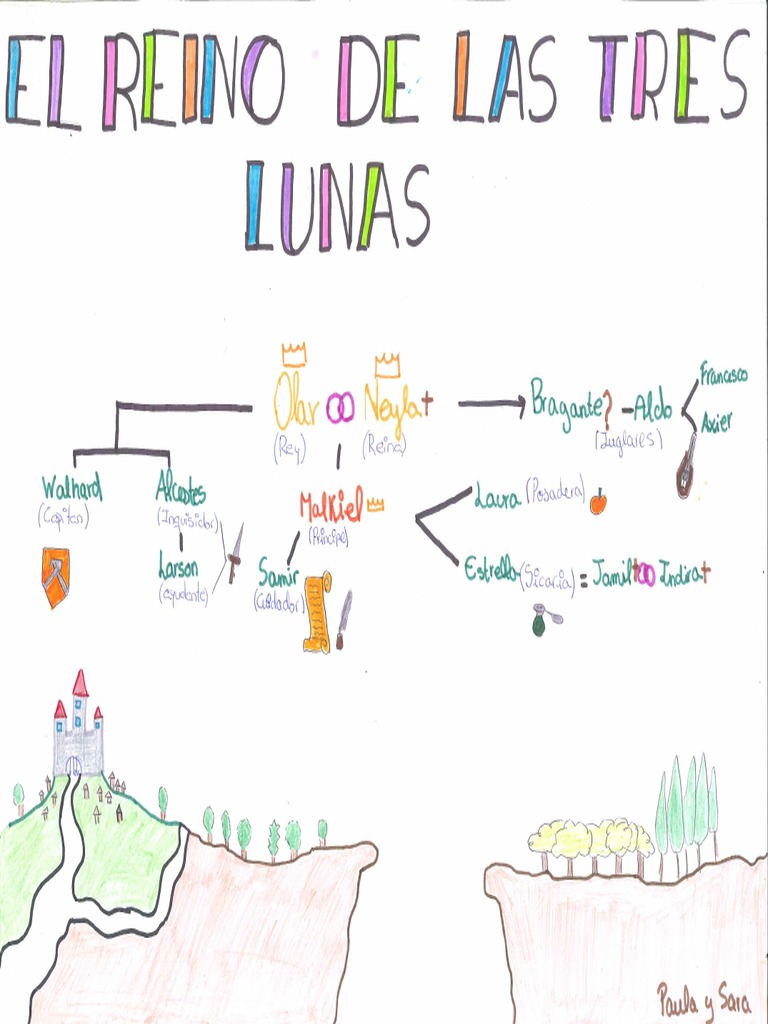 EL REINO DE LAS TRES
LUNAS
Olav Neyla
(Rey) (Reina)
Bragante? - Aldo
(Juglares)
Francesco
Axier
Walhard
(Capitan)
Alcestes
(Inquisidor)
Larson
(ayudante)
Malkiel
(Príncipe)
Samir
(Cuidador)
Laura (Posadera)
Estrella (Sicaria) = Jamil Indira
Paula y Sara